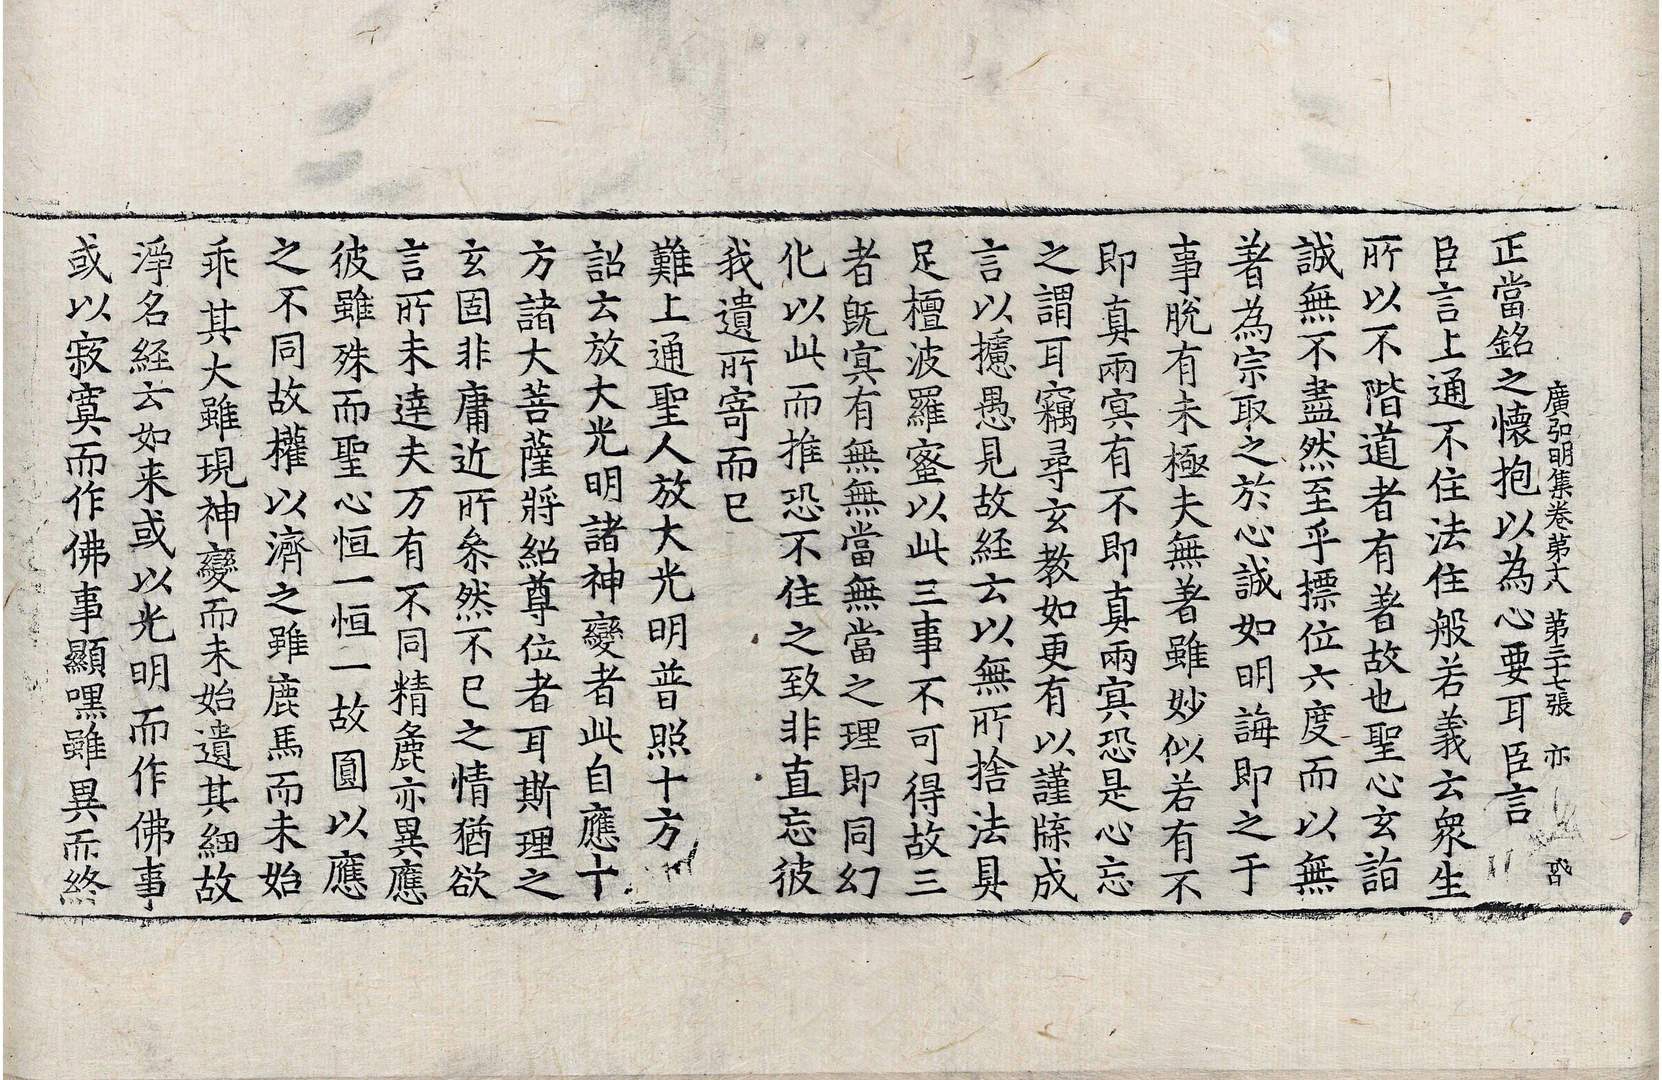 廣弘明集卷第十八 第三十七張 亦
正當銘之懷抱以為心要耳臣言
臣言上通不住法住般若義云衆生
所以不階道者有著故也聖心玄詣
誠無不盡然至乎摽位六度而以無
著為宗取之於心誠如明誨即之于
事脫有未極夫無著雖妙似若有不
即真兩冥有不即真兩冥恐是心忘
之謂耳竊尋玄教如更有以謹牒成
言以攄愚見故経云以無所捨法具
足檀波羅蜜以此三事不可得故三
者旣冥有無無當無當之理即同幻
化以此而推恐不住之致非直忘彼
我遺所寄而已
難上通聖人放大光明普照十方
詔云放大光明諸神變者此自應十
方諸大菩薩將紹尊位者耳斯理之
玄固非庸近所叅然不已之情猶欲
言所未逹夫万有不同精麁亦異應
彼雖殊而聖心恒一恒一故圓以應
之不同故權以濟之雖鹿馬而未始
乖其大雖現神變而未始遺其細故
淨名経云如来或以光明而作佛事
或以寂寞而作佛事顯嘿雖異而終